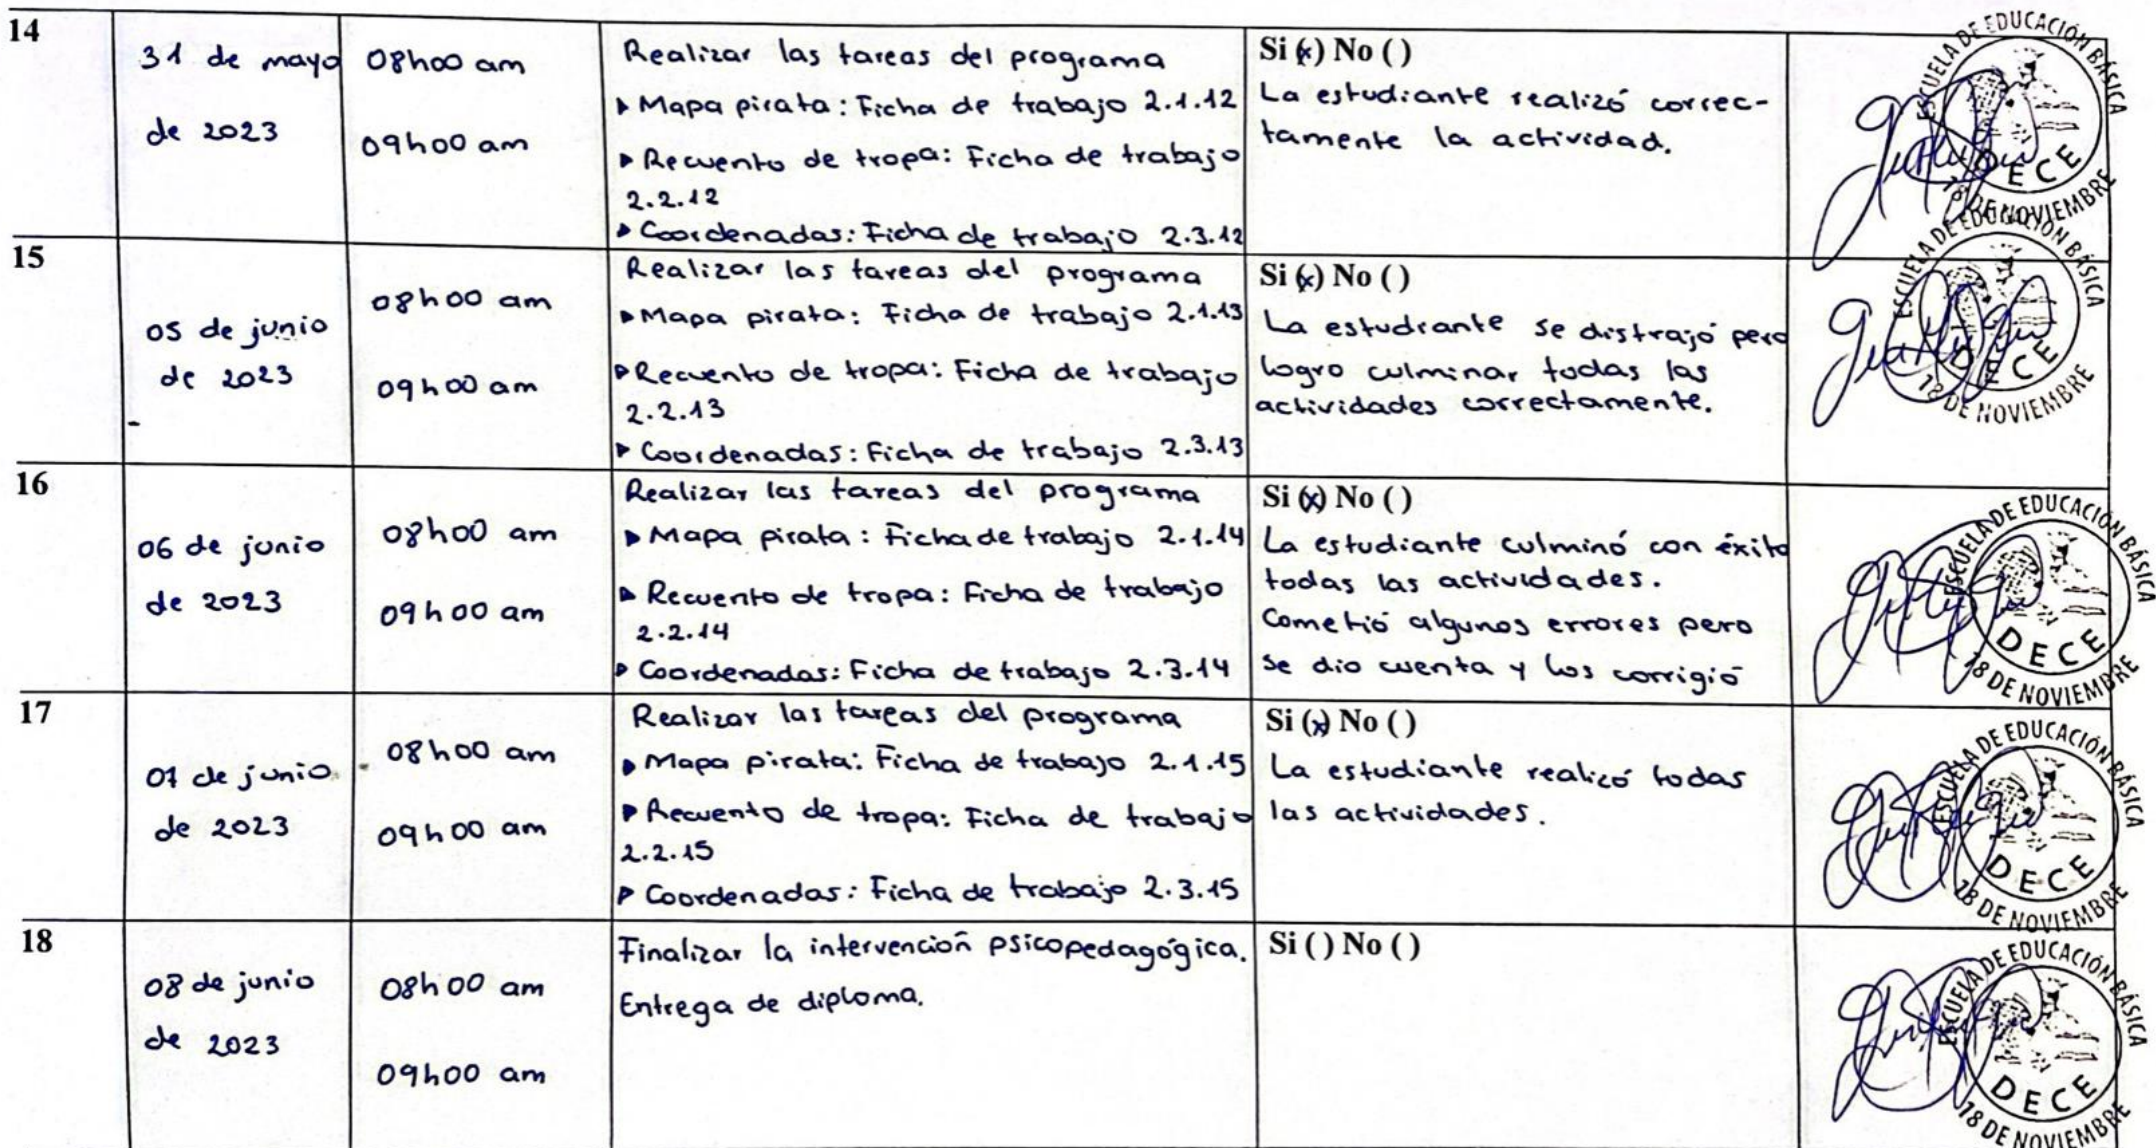 14
31 de mayo
de 2023
08h00 am
09h00 am
Realizar las tareas del programa
▸ Mapa pirata: Ficha de trabajo 2.1.12
▸ Recuento de tropa: Ficha de trabajo
2.2.12
▸ Coordenadas: Ficha de trabajo 2.3.12
Si (x) No ( )
La estudiante realizó correc-
tamente la actividad.
ESCUELA DE EDUCACIÓN BÁSICA
DECE
18 DE NOVIEMBRE
15
05 de junio
de 2023
08h00 am
09h00 am
Realizar las tareas del programa
▸ Mapa pirata: Ficha de trabajo 2.1.13
▸ Recuento de tropa: Ficha de trabajo
2.2.13
▸ Coordenadas: Ficha de trabajo 2.3.13
Si (x) No ( )
La estudiante se distrajó pero
logro culminar todas las
actividades correctamente.
ESCUELA DE EDUCACIÓN BÁSICA
DECE
18 DE NOVIEMBRE
16
06 de junio
de 2023
08h00 am
09h00 am
Realizar las tareas del programa
▸ Mapa pirata: Ficha de trabajo 2.1.14
▸ Recuento de tropa: Ficha de trabajo
2.2.14
▸ Coordenadas: Ficha de trabajo 2.3.14
Si (x) No ( )
La estudiante culminó con éxito
todas las actividades.
Cometió algunos errores pero
se dio cuenta y los corrigió
ESCUELA DE EDUCACIÓN BÁSICA
DECE
18 DE NOVIEMBRE
17
07 de junio
de 2023
08h00 am
09h00 am
Realizar las tareas del programa
▸ Mapa pirata: Ficha de trabajo 2.1.15
▸ Recuento de tropa: Ficha de trabajo
2.2.15
▸ Coordenadas: Ficha de trabajo 2.3.15
Si (x) No ( )
La estudiante realizó todas
las actividades.
ESCUELA DE EDUCACIÓN BÁSICA
DECE
18 DE NOVIEMBRE
18
08 de junio
de 2023
08h00 am
09h00 am
Finalizar la intervención psicopedagógica.
Entrega de diploma.
Si ( ) No ( )
ESCUELA DE EDUCACIÓN BÁSICA
DECE
18 DE NOVIEMBRE